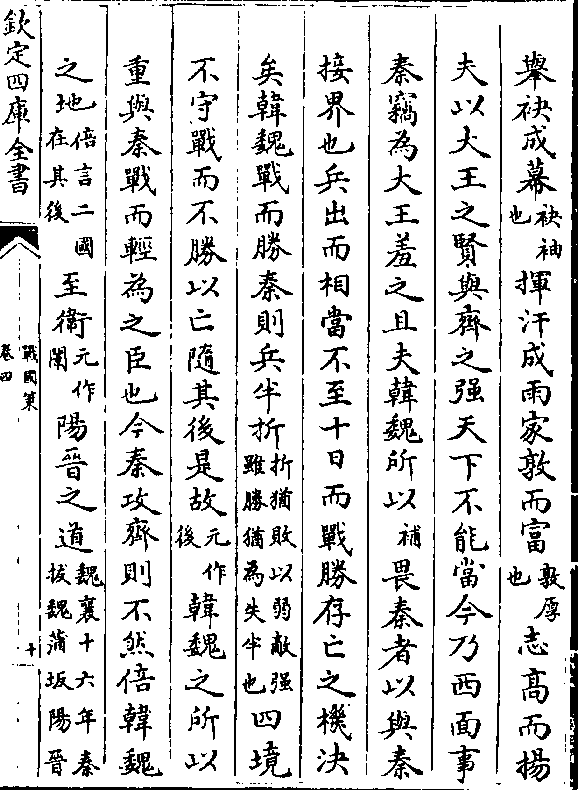 舉袂成幕袂袖也揮汗成雨家敦而富敦厚也志高而揚
夫以大王之賢與齊之强天下不能當今乃西面事
秦竊為大王羞之且夫韓魏所以補畏秦者以與秦
接界也兵出而相當不至十日而戰勝存亡之機決
矣韓魏戰而勝秦則兵半折折猶敗以弱敵强雖勝猶為失半也四境
不守戰而不勝以亡隨其後是故元作後韓魏之所以
重與秦戰而輕為之臣也今秦攻齊則不然倍韓魏
之地倍言二國在其後至衛元作闈陽晉之道魏襄十六年秦拔魏蒲坂陽晉
欽定四庫全書
戰國策
卷四
十